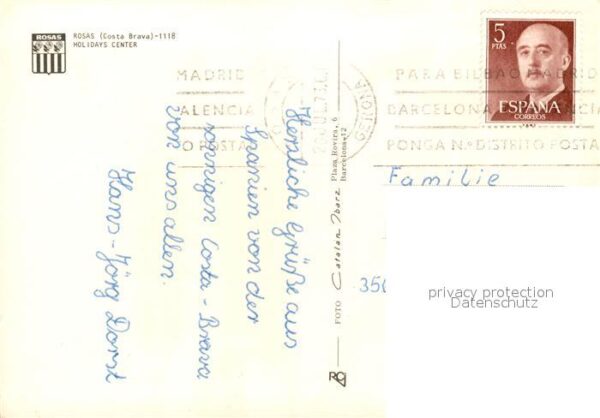 ROSAS
ROSAS (Costa Brava)-1118
HOLIDAYS CENTER
Herzliche Grüße aus
Spanien von der
sonnigen Costa-Brava
von uns allen.
Hans-Jörg
MADRID
VALENCIA
POSTAL
GERONA
FOTO Catalan Ibarz
Plaza Rovira, 6
Barcelona-12
5
PTAS
ESPAÑA
CORREOS
PARA BILBAO MADRID
BARCELONA VALENCIA
PONGA N.º DISTRITO POSTAL
Familie
350
privacy protection
Datenschutz